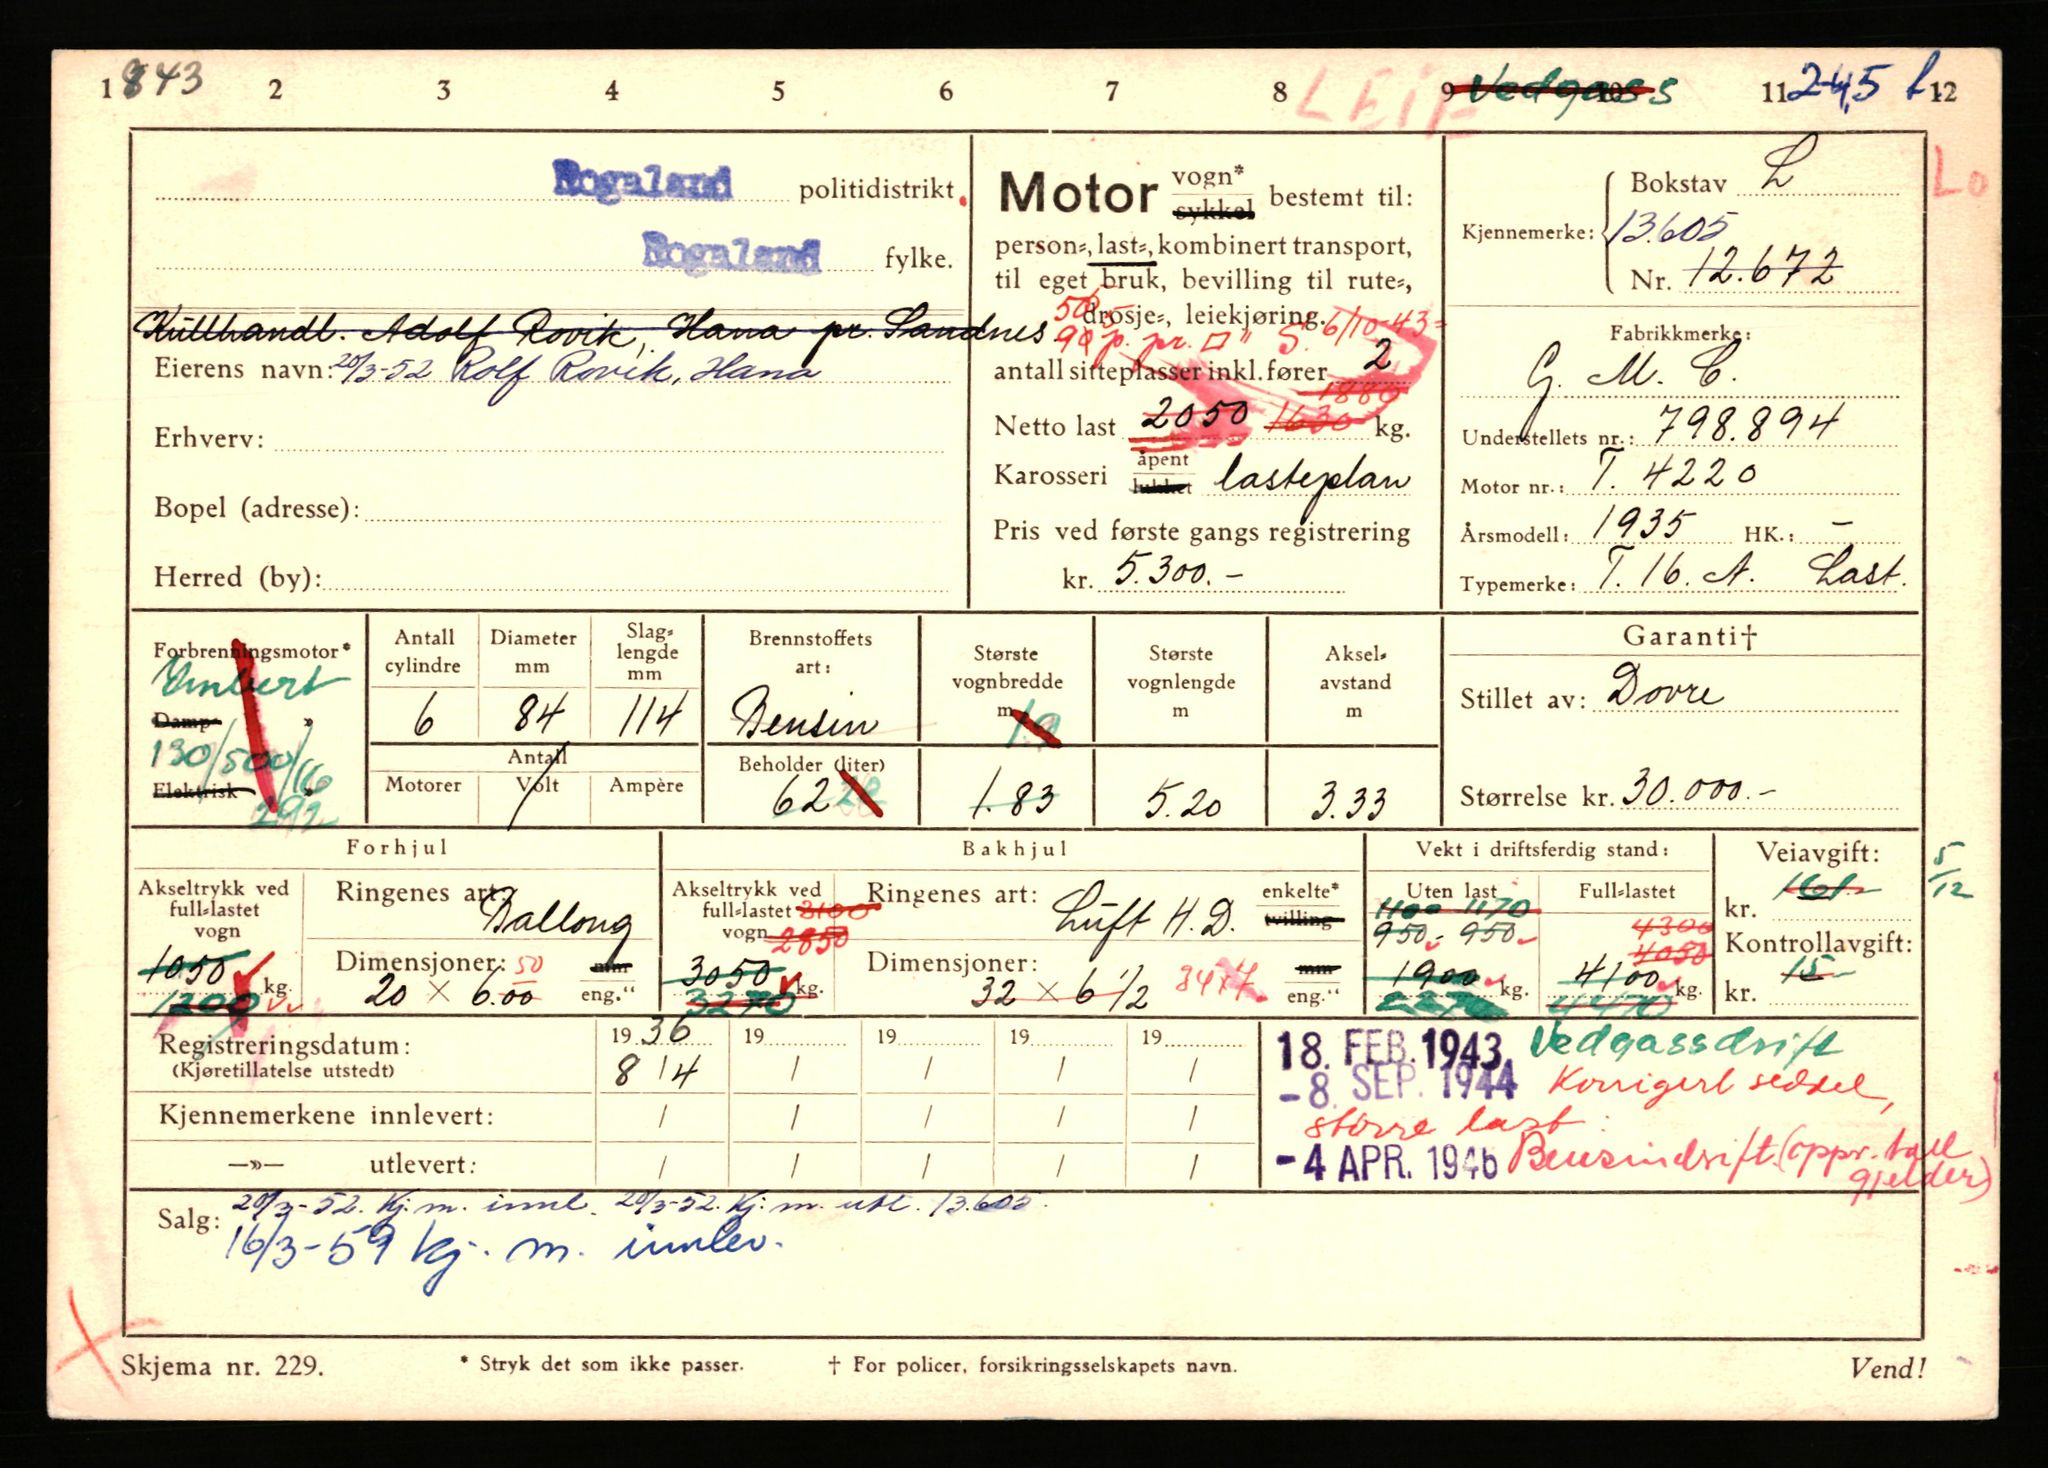 1 843 2 3 4 5 6 7 8 LEIE 9 Vedgass 10 11 24,5 L 12
Rogaland politidistrikt.
Rogaland fylke.
Kullhandl. Adolf Rovik, Hana pr. Sandnes
Eierens navn: 20/3-52 Rolf Rovik, Hana
Erhverv:
Bopel (adresse):
Herred (by):
Motor vogn* sykkel bestemt til:
person-, last-, kombinert transport,
til eget bruk, bevilling til rute-,
drosje-, leiekjøring.
p. pr. □" S. 6/10-43
antall sitteplasser inkl. fører 2
1880
Netto last 2050 1630 kg.
Karosseri åpent lukket lasteplan
Pris ved første gangs registrering
kr. 5.300.-
Lo
Kjennemerke: Bokstav L
13.605
Nr. 12.672
Fabrikkmerke:
G. M. C.
Understellets nr.: 798.894
Motor nr.: T. 4220
Årsmodell: 1935 HK.: -
Typemerke: T. 16. A. Last.
Forbrenningsmotor*
Imbert
Damp- »
130/500/16
Elektrisk »
292
Antall cylindre
6
Diameter mm
84
Slag-lengde mm
114
Antall
Motorer Volt Ampère
Brennstoffets art:
Bensin
Beholder (liter)
62 28
Største vognbredde m
1.9
1.83
Største vognlengde m
5.20
Aksel-avstand m
3.33
Garanti†
Stillet av: Dovre
Størrelse kr. 30.000.-
Forhjul
Akseltrykk ved full-lastet vogn
1050 kg.
1200
Ringenes art:
Ballong
Dimensjoner: 50
20 × 6.00 mm eng."
Bakhjul
Akseltrykk ved full-lastet vogn
3100
2850
3050 kg.
3270
Ringenes art: Luft H.D. enkelte* tvilling
Dimensjoner:
32 × 6 1/2 34x7 mm eng."
Vekt i driftsferdig stand:
Uten last
1100 1170
950 - 950
1900 kg.
2270
Full-lastet
4300
4050
4100 kg.
4470
Veiavgift:
kr. 161.-
5/12
Kontrollavgift:
kr. 15-
Registreringsdatum: 1936 19 19 19 19
(Kjøretillatelse utstedt) 8/4 / / / /
Kjennemerkene innlevert: / / / / /
—»— utlevert: / / / / /
18. FEB. 1943 Vedgassdrift
-8. SEP. 1944 Korrigert seddel,
større last:
-4 APR. 1946 Bensindrift. (oppr. tall
gjelder)
20/3-52. Kj. m. innl. 20/3-52. Kj. m. utl. 13.605.
Salg: 16/3-59 kj. m. innlev.
Skjema nr. 229. * Stryk det som ikke passer. † For policer, forsikringsselskapets navn. Vend!